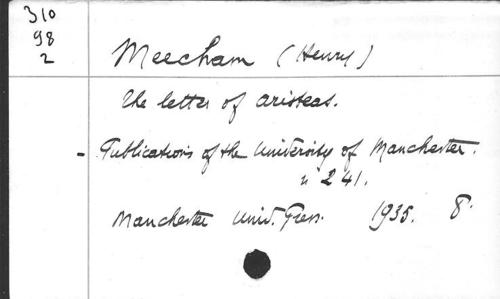 310
98
2
Meecham (Henry)
The letter of aristeas.
- Publications of the University of Manchester.
n° 241.
Manchester Univ. Press. 1935. 8°